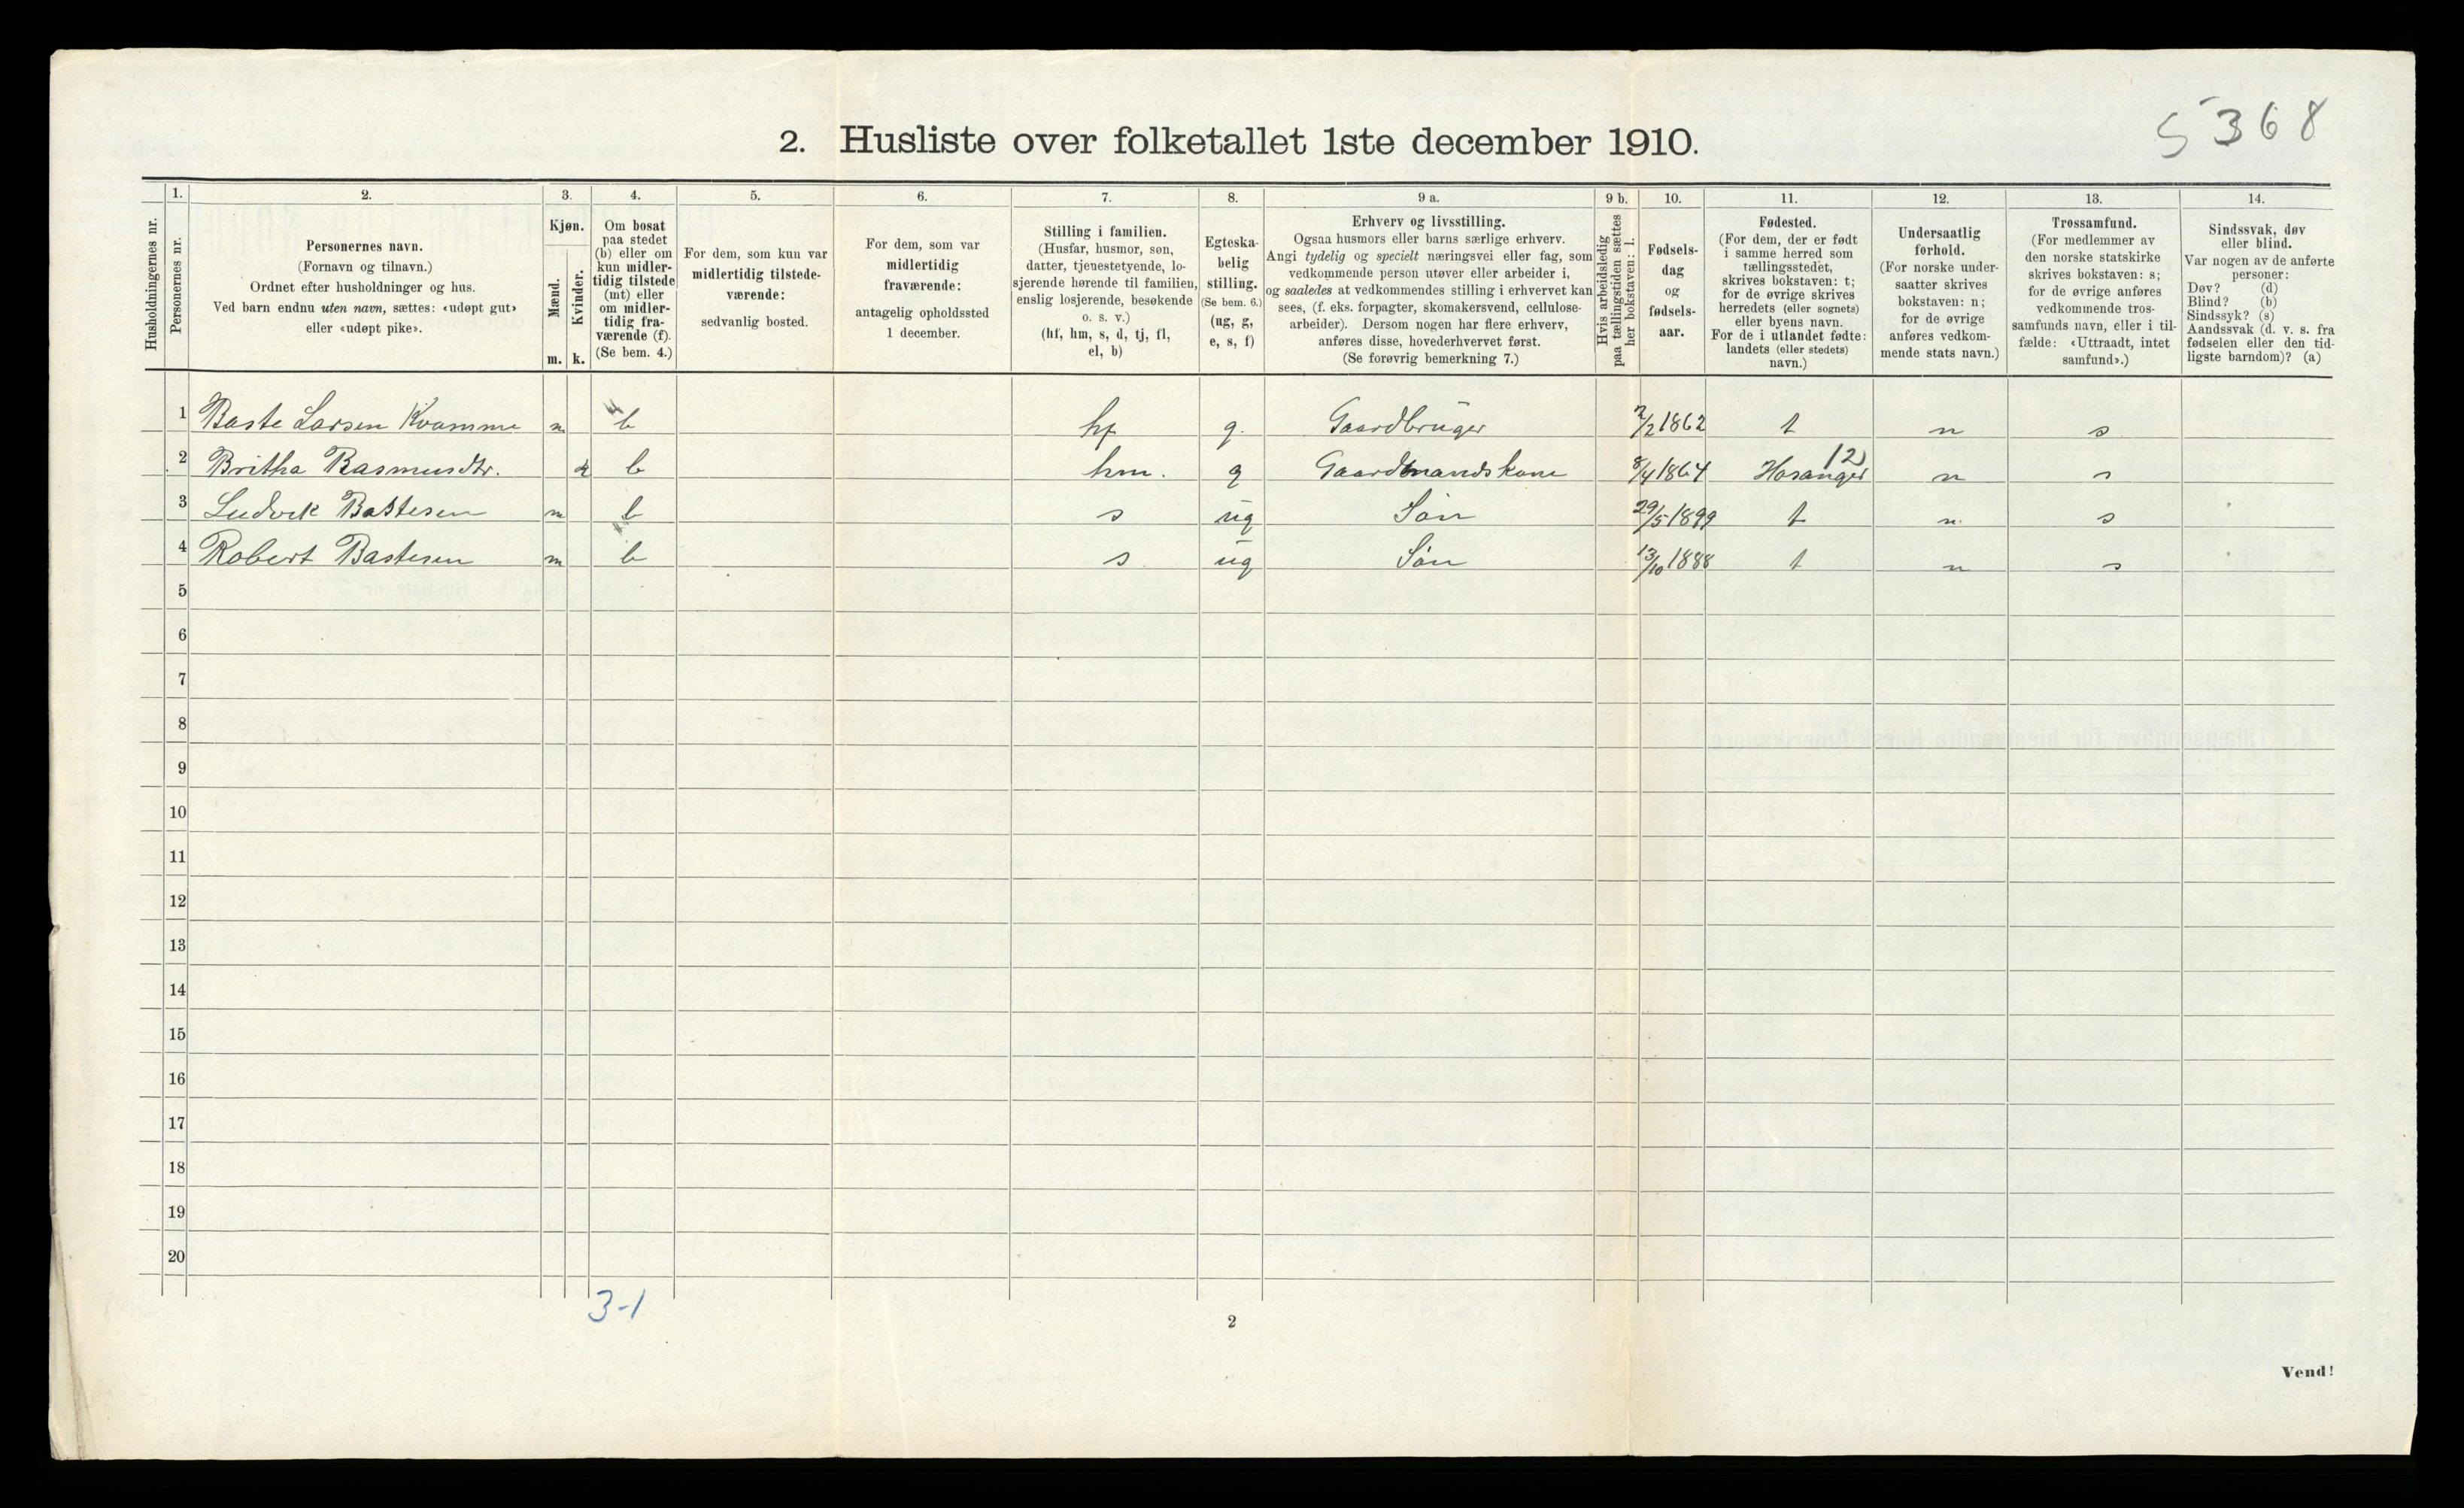 5368
2. Husliste over folketallet 1ste december 1910.
Husholdningernes nr.
1.
Personernes nr.
2.
Personernes navn.
(Fornavn og tilnavn.)
Ordnet efter husholdninger og hus.
Ved barn endnu uten navn, sættes: «udøpt gut»
eller «udøpt pike».
3.
Kjøn.
Mænd.
m.
Kvinder.
k.
4.
Om bosat
paa stedet
(b) eller om
kun midler-
tidig tilstede
(mt) eller
om midler-
tidig fra-
værende (f).
(Se bem. 4.)
5.
For dem, som kun var
midlertidig tilstede-
værende:
sedvanlig bosted.
6.
For dem, som var
midlertidig
fraværende:
antagelig opholdssted
1 december.
7.
Stilling i familien.
(Husfar, husmor, søn,
datter, tjenestetyende, lo-
sjerende hørende til familien,
enslig losjerende, besøkende
o. s. v.)
(hf, hm, s, d, tj, fl,
el, b)
8.
Egteska-
belig
stilling.
(Se bem. 6.)
(ug, g,
e, s, f)
9 a.
Erhverv og livsstilling.
Ogsaa husmors eller barns særlige erhverv.
Angi tydelig og specielt næringsvei eller fag, som
vedkommende person utøver eller arbeider i,
og saaledes at vedkommendes stilling i erhvervet kan
sees, (f. eks. forpagter, skomakersvend, cellulose-
arbeider). Dersom nogen har flere erhverv,
anføres disse, hovederhvervet først.
(Se forøvrig bemerkning 7.)
9 b.
Hvis arbeidsledig
paa tællingstiden sættes
her bokstaven: l.
10.
Fødsels-
dag
og
fødsels-
aar.
11.
Fødested.
(For dem, der er født
i samme herred som
tællingsstedet,
skrives bokstaven: t;
for de øvrige skrives
herredets (eller sognets)
eller byens navn.
For de i utlandet fødte:
landets (eller stedets)
navn.)
12.
Undersaatlig
forhold.
(For norske under-
saatter skrives
bokstaven: n;
for de øvrige
anføres vedkom-
mende stats navn.)
13.
Trossamfund.
(For medlemmer av
den norske statskirke
skrives bokstaven: s;
for de øvrige anføres
vedkommende tros-
samfunds navn, eller i til-
fælde: «Uttraadt, intet
samfund».)
14.
Sindssvak, døv
eller blind.
Var nogen av de anførte
personer:
Døv? (d)
Blind? (b)
Sindssyk? (s)
Aandssvak (d. v. s. fra
fødselen eller den tid-
ligste barndom)? (a)
1 Baste Larsen Kvamme m b hf g. Gaardbrüger 2/2 1862 t n s
2 Britha Rasmusdtr. k b hm. g Gaardmandskone 8/4 1864 Hosanger 12 n s
3 Ludvik Bastesen m b s üg Søn 29/5 1899 t n. s
4 Robert Bastesen m b s üg Søn 13/10 1888 t n s
5
6
7
8
9
10
11
12
13
14
15
16
17
18
19
20
3-1
2
Vend!